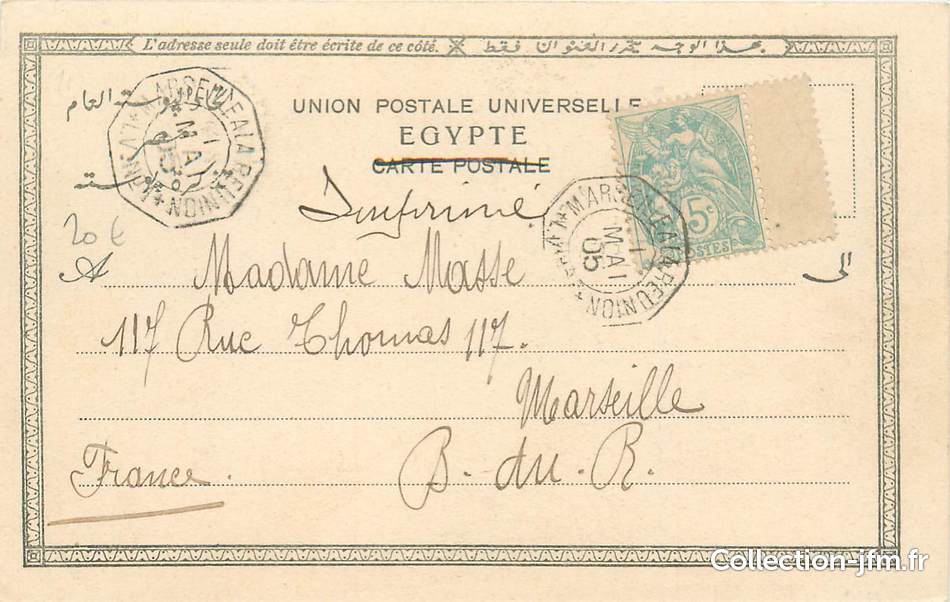 L'adresse seule doit être écrite de ce côté. هذا الوجه محرر العنوان فقط
UNION POSTALE UNIVERSELLE
EGYPTE
CARTE POSTALE
العام
MARSEILLE A LA REUNION
MAI
05
Imprimé
5c
POSTES
MARSEILLE A LA REUNION
MAI
05
20 €
A Madame Masse الى
117 Rue Thomas 117.
Marseille
France. B. du. R.
Collection-jfm.fr